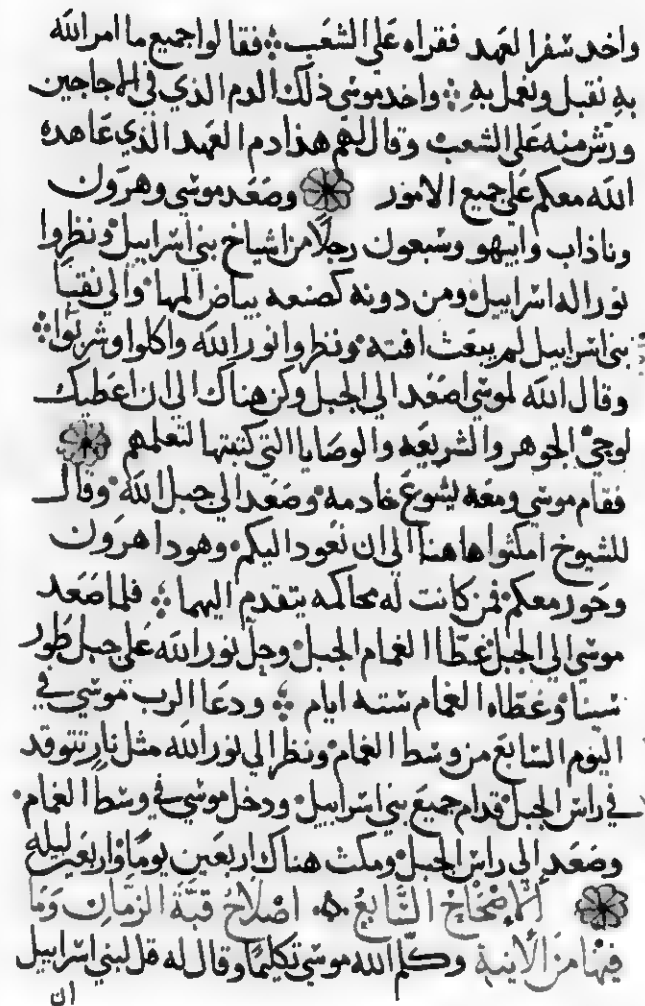 واخد سفر العهد فقراه على الشعب فقالوا جميع ما امر الله
به نقبل ونعمل به واخد موسى ذلك الدم الذي في الاجاجين
ورش منه على الشعب وقال لهم هذا دم العهد الذي عاهده
الله معكم على جميع الامور وصعد موسي وهرون
وناذاب وابيهو وسبعون رجلا من اشياخ بني اسراييل ونظروا
نور اله اسراييل ومن دونه كصنعه بياض المها والي نقبا
بني اسراييل لم يبعث افته ونظروا نور الله واكلوا وشربوا
وقال الله لموسى اصعد الي الجبل وكن هناك الى ان اعطيك
لوحي الجوهر والشريعه والوصايا التي كتبتها لتعلمهم
فقام موسى ومعه يشوع خادمه وصعد الي جبل الله وقال
للشيوخ امكثوا هاهنا الي ان نعود اليكم وهودا هرون
وحور معكم فمن كانت له محاكمه يتقدم اليهما فلما صعد
موسى الي الجبل غطا الغمام الجبل وحل نور الله على جبل طور
سينا وغطاه الغمام سته ايام ودعا الرب موسي في
اليوم السابع من وسط الغمام ونظر الي نور الله مثل نار تتوقد
في راس الجبل قدام جميع بني اسراييل ودخل موسي في وسط الغمام
وصعد الي راس الجبل ومكث هناك اربعين يوما واربعين ليله
الاصحاح السابع اصلاح قبة الزمان وما
فيها من الانية وكلم الله موسي تكليما وقال له قل لبني اسراييل
ان